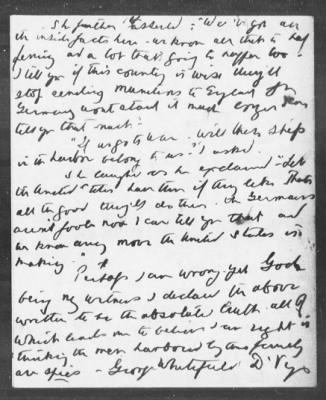 She further Exclaimed; "We've got all
the inside facts here - we know all that is hap
pening and a lot that's going to happen too -
I tell you if this country is wise they'll
stop sending munitions to England for
Germany wont stand it much longer I can
tell you that much."
"If us go to war - will these ships
in the harbor belong to us?" I asked.
She laughed as she exclaimed - "Let
the United States have them if they like. Thats
all the good they'll do them. The Germans
aren't fools now I can tell you that and
we know every move the United States is
making."
Perhaps I am wrong yet God
being my witness I declare the above
written to be the absolute truth all of
which leads me to believe I am right in
thinking the men harboured by this family
are spies - George Whitefield D'Vys